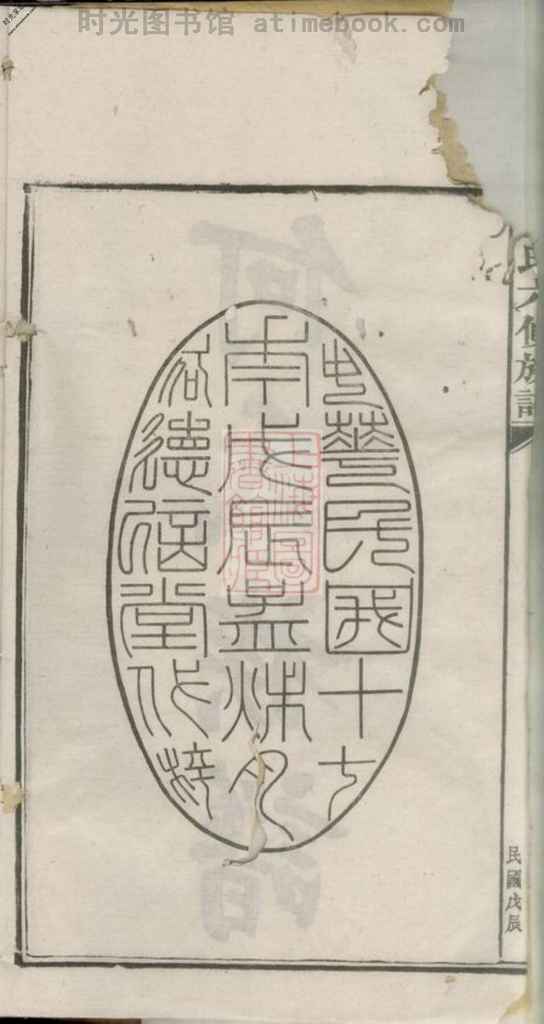 时光图书馆 atimebook.com
氏六修族譜
民國戊辰
中華民國十七
年戊辰孟秋月
德信堂代梓